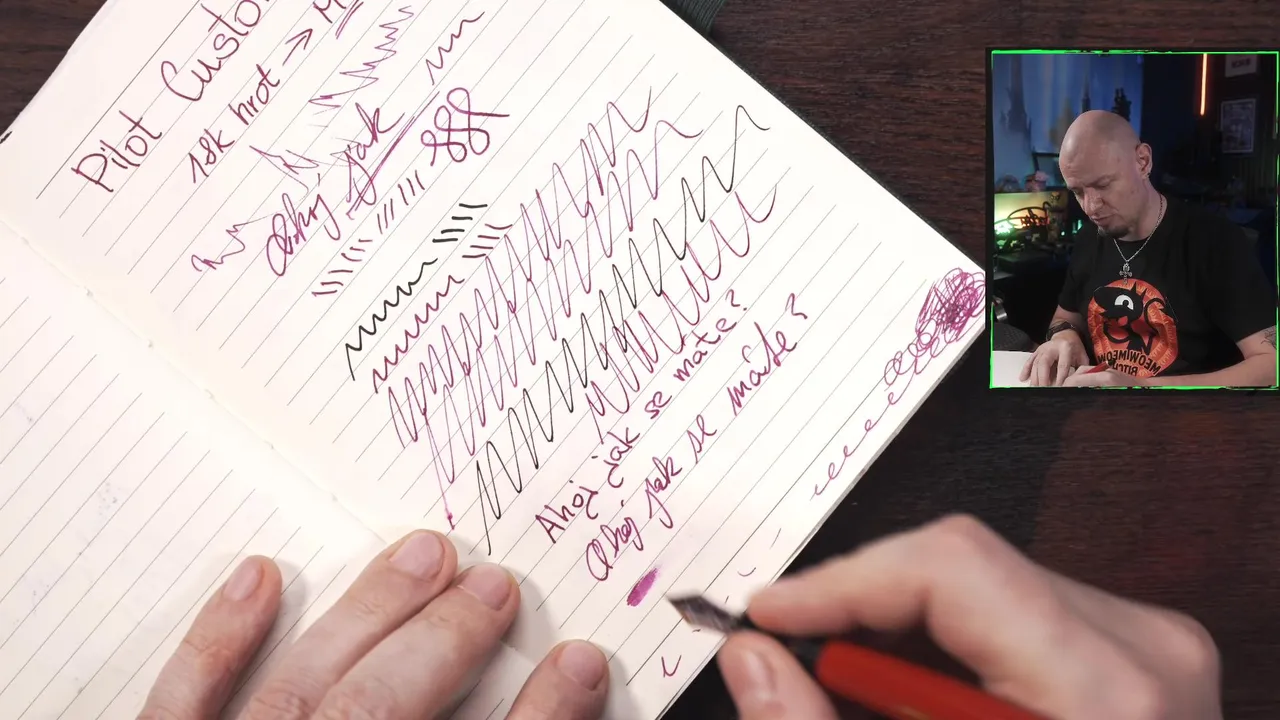 Pilot Custo
18k hrot → M
Ahoj jak
Ahoj jak se mate?
Ahoj jak se máte?
MEOWIMEOW
BITCH